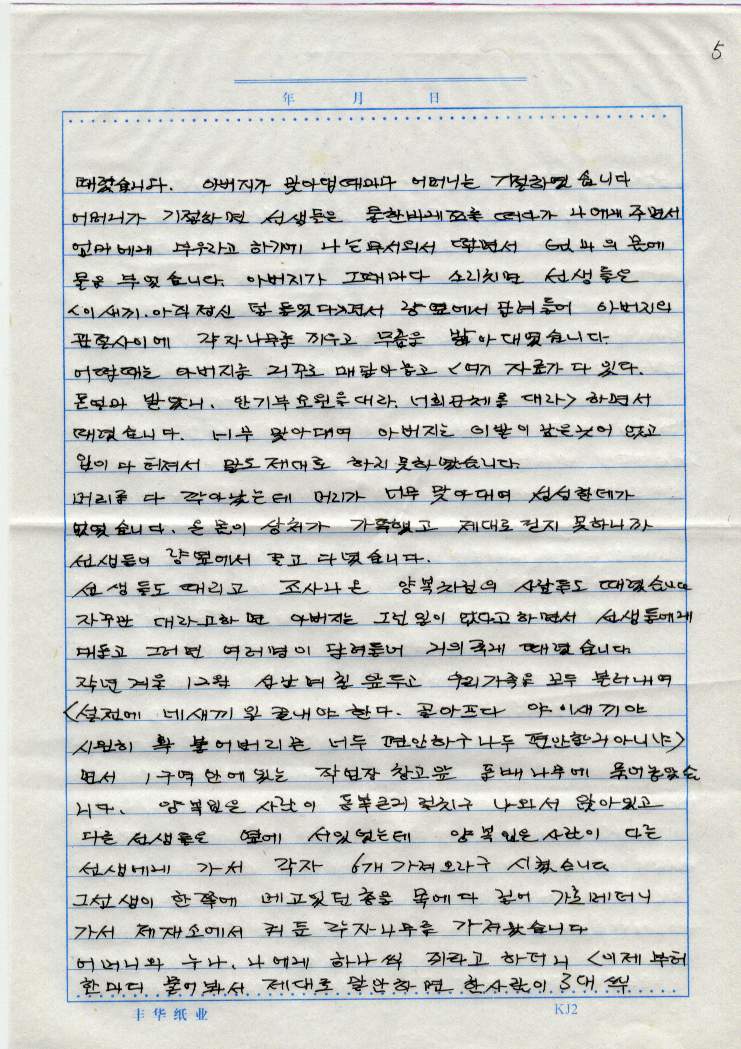 5
年 月 日
때렸습니다. 아버지가 맞아댈때마다 어머니는 기절하였습니다
어머니가 기절하면 선생들은 물한바께쯔를 떠다가 나에게 주면서
엄마에게 부우라고 하기에 나는 무서워서 떨면서 엄마의 몸에
물을 부었습니다. 아버지가 그때마다 소리치면 선생들은
<이새끼. 아직 정신 덜 들었다>면서 량옆에서 달려들어 아버지의
관절사이에 각자나무를 끼우고 무릎을 밟아대였습니다.
어떤때는 아버지를 꺼꾸로 매달아놓고 <여기 자료가 다 있다.
몬영마 발았니, 안기부요원을 대라. 너희단체를 대라> 하면서
때렸습니다. 너무 맞아대여 아버지는 이발이 남은것이 없고
입이 다 터져서 말도 제대로 하지 못하였습니다.
머리를 다 깎아놨는데 머리가 너무 맞아대여 성성한데가
없었습니다. 온몸이 상처가 가득했고 제대로 걷지 못하니까
선생들이 량옆에서 끌고 다녔습니다.
선생들도 때리고 조사나온 양복차림의 사람들도 때렸습니다
자꾸만 대라고하면 아버지는 그런일이 없다고하면서 선생들에게
대들고 그러면 여러명이 달려들어 거의죽게 때렸습니다.
작년 겨울 12월 설날 며칠 앞두고 우리가족을 모두 불러내여
<설전에 네새끼 일 끝내야 한다. 골아프다 야 이새끼야
시원히 확 불어버리는 너두 편안하구 나두 편안할거 아니냐>
면서 1구역안에 있는 작업장 창고앞 돌배나무에 묶어놓았습
니다. 양복입은 사람이 동복큰거 걸치구 나와서 앉아있고
다른 선생들은 옆에 서있었는데 양복입은 사람이 다른
선생에게 가서 각자 6개 가져오라구 시켰습니다
그선생이 한쪽에 메고있던 총을 목에다 걸어 가로메더니
가서 제재소에서 켜둔 각자나무를 가져왔습니다
어머니와 누나, 나에게 하나씩 쥐라고 하더니 <이제부터
한마디 물어봐서 제대로 말안하면 한사람이 3대씩
丰华纸业
KJ2